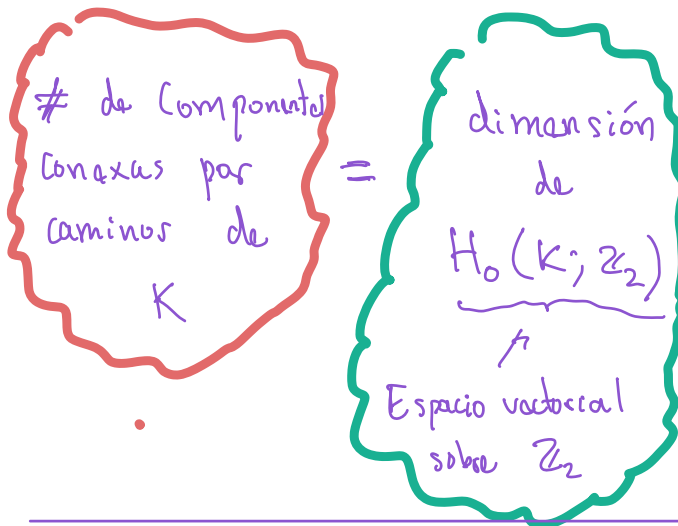 # de Componentes
conexas por
caminos de
K
=
dimensión
de
H₀(K; ℤ₂)
Espacio vectorial
sobre ℤ₂